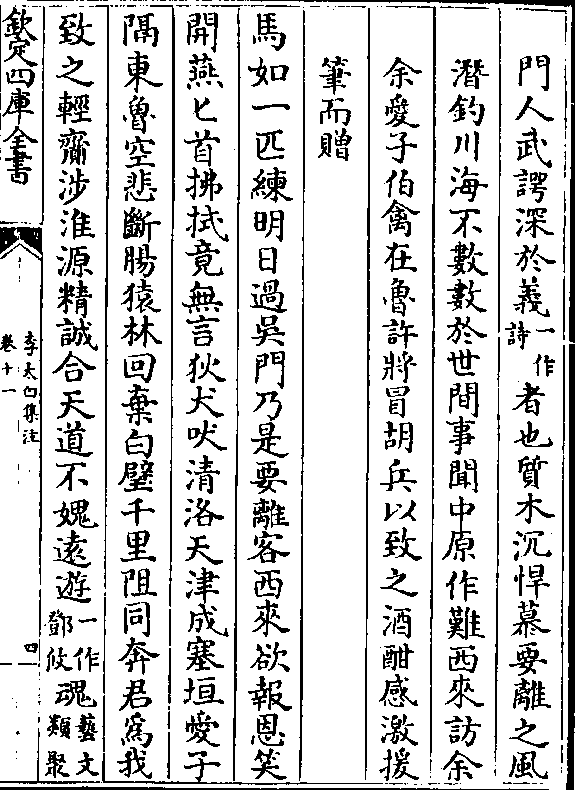 門人武諤深於義一作詩者也質木沉悍慕要離之風
潛釣川海不數數於世間事聞中原作難西來訪余
余愛子伯禽在魯許將冒胡兵以致之酒酣感激援
筆而贈
馬如一匹練明日過吳門乃是要離客西來欲報恩笑
開燕匕首拂拭竟無言狄犬吠清洛天津成塞垣愛子
隔東魯空悲斷腸猿林回棄白璧千里阻同奔君為我
致之輕齎涉淮源精誠合天道不媿遠遊一作鄧攸魂藝文類聚
欽定四庫全書
李太白集注
卷十一
四